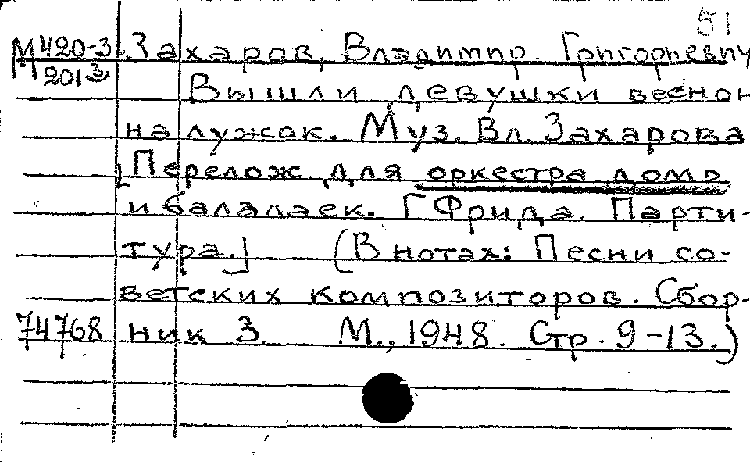 51
М420-3 Захаров, Владимир Григорьевич
М201з
Вышли девушки весной
на лужок. Муз. Вл. Захарова
[Перелож. для оркестра домр
и балалаек. Г Фрида. Парти-
тура.] (В нотах: Песни со-
ветских композиторов. Сбор-
74768 ник 3. М., 1948. Стр. 9-13.)